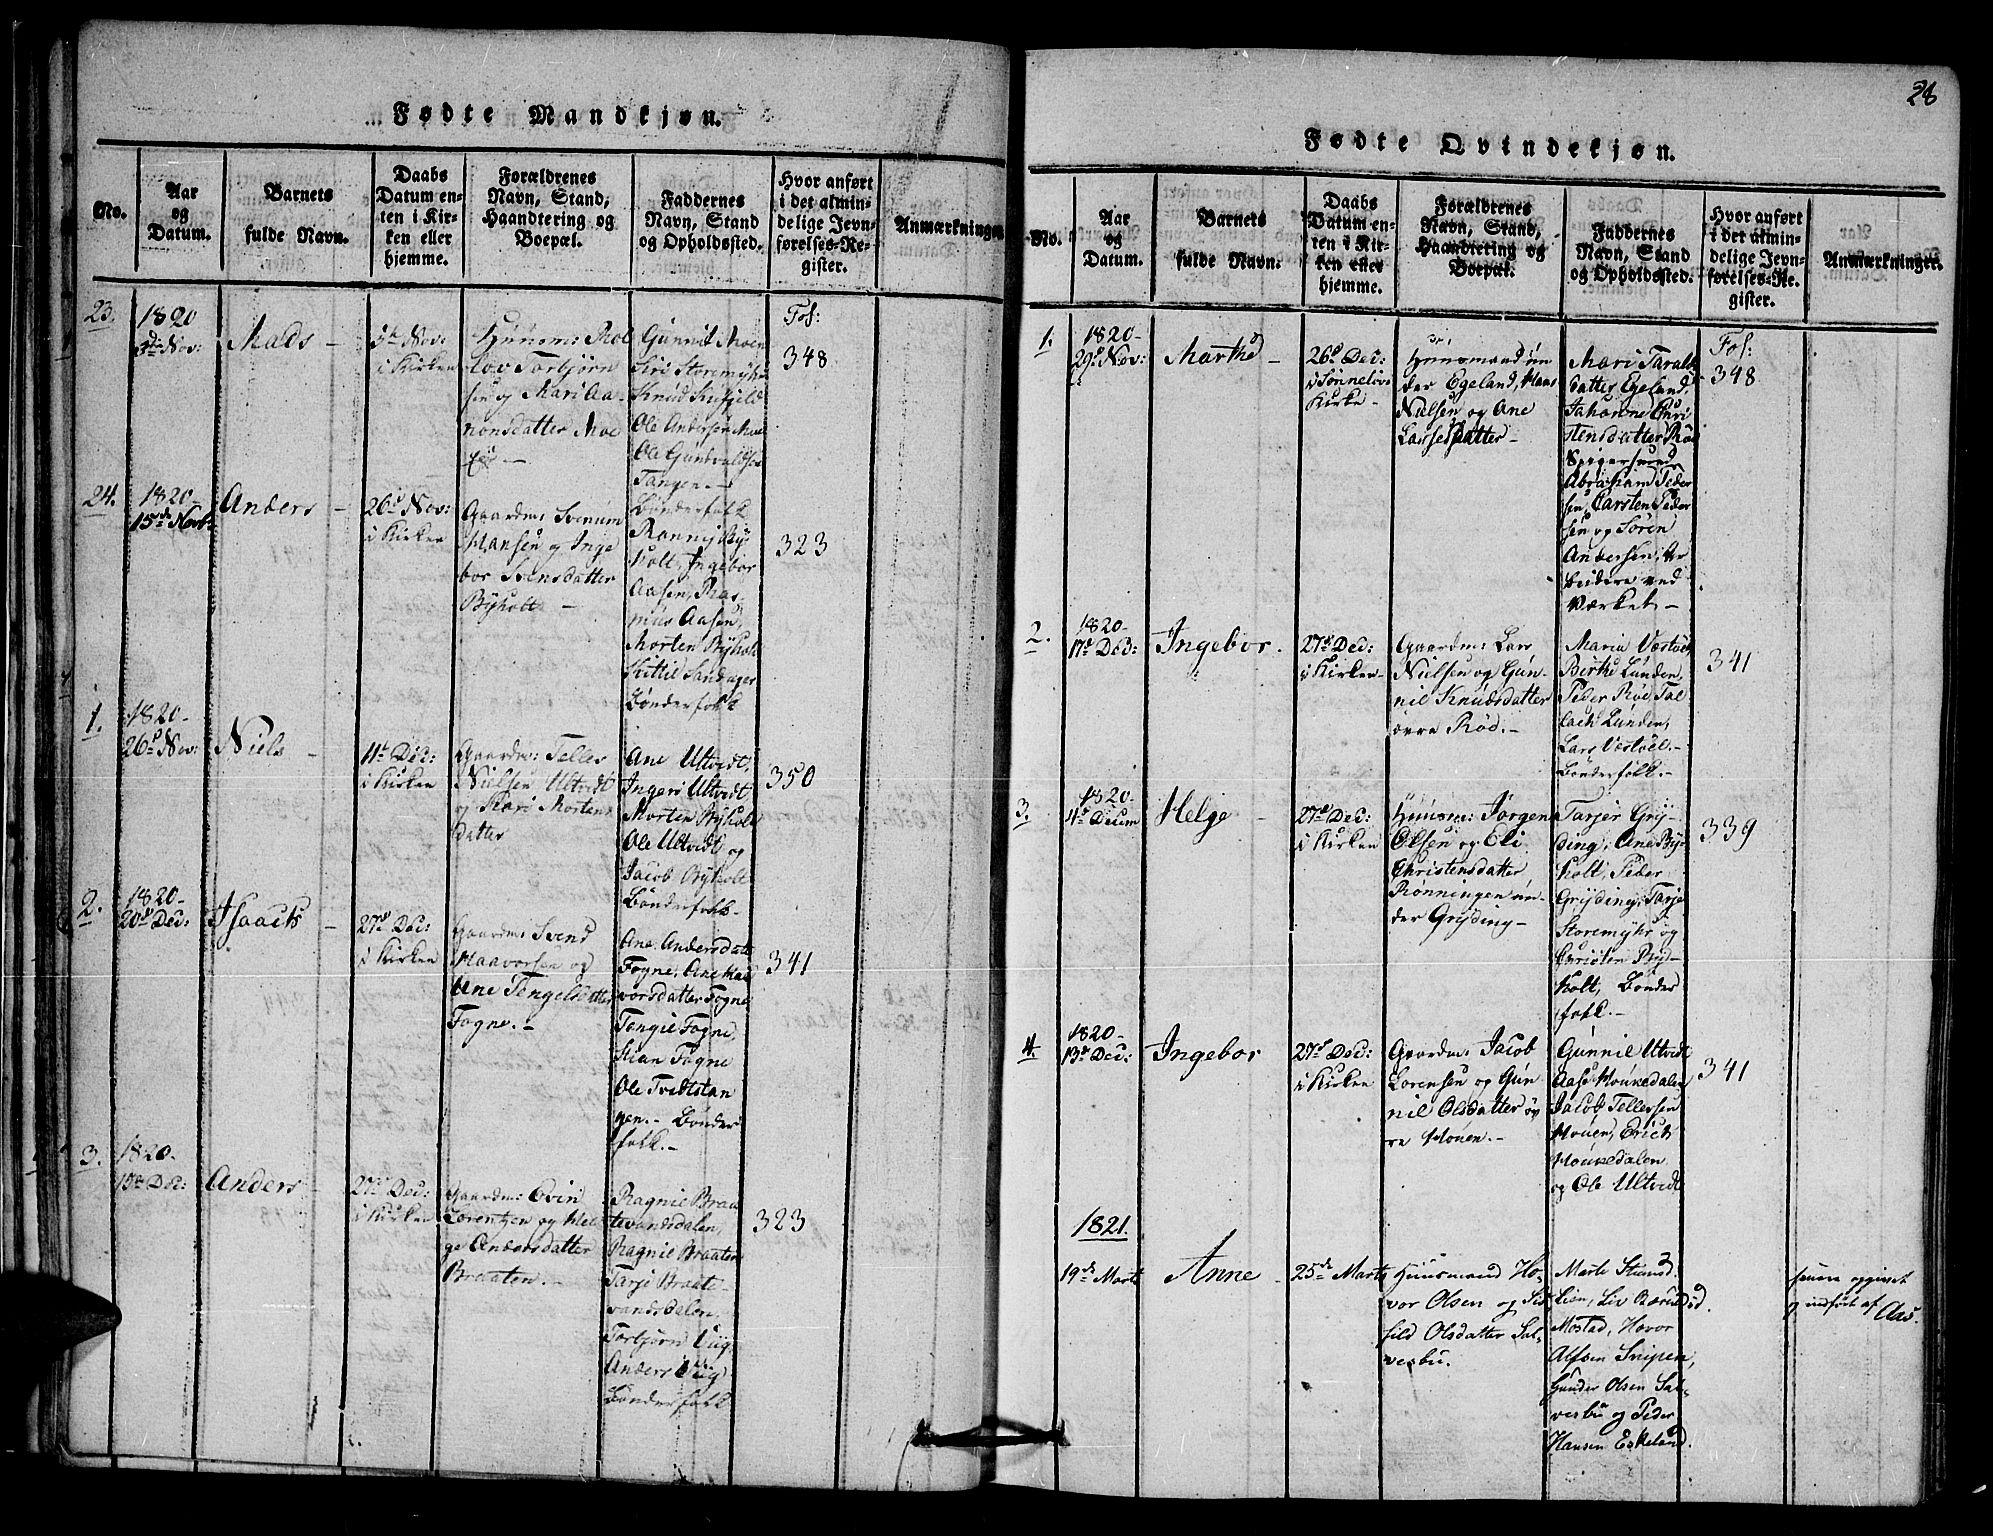 Fødte Mandkjøn.
No.
Aar
og
Datum.
Barnets
fulde Navn.
Daabs
Datum en-
ten i Kir-
ken eller
hjemme.
Forældrenes
Navn, Stand,
Haandtering og
Boepæl.
Faddernes
Navn, Stand
og Opholdssted.
Hvor anført
i det almin-
delige Jevn-
førelses-Re-
gister.
Anmærkninger
23.
1820
Nov:
Mads
5te Nov:
i Kirken
Huusm:
lov Torbjørn
sen og Mari Aa-
nonsdatter Moe
Gunnil Moen
Siri Storemyhr
Knud
Ole Andersen Moe
Ole Gundvaldsen
Tangen.-
Bønderfolk
Fol:
348
24.
1820-
15de Novb:
Anders
26d Nov:
i Kirken
Gaardm: Svenum
Hansen og Inge
bor Svensdatter
Byholt
holt, Ingebor
Aasen, Ras-
mus Aasen,
Morten Byholt
Kittil Sandager
Bønderfolk
323
1.
1820-
26d Nov:
Niels
11te Dec:
i Kirken
Gaardm: Teller
Nielsen Ultvedt
og Kari Mortens
datter
Ane Ultvedt,
Ingeri Ultvedt
Morten Byholt
Ole Ultvedt og
Jacob Byholt
Bønderfolk
350
2.
1820-
20de Dec:
Isaach
27de Dec:
i Kirken
Gaardm: Svend
Haavorsen og
Ane Tengelsdatter
Fogne.-
Ane Andersdatt
Fogne, Ane Haa
vorsdatter Fogne
Tengie Fogne,
Stian Fogne
Ole Tvedtstan
gen.- Bønder
folk.-
341
3.
1820-
15de Dec:
Anders
27de Dec:
i Kirken
Gaardm: Evin
Lorentzen og Hel-
ge Andersdatter
Braaten.-
Ragnil Braa
tevandsdalen,
Ragnil Braaten
Tarje Braate-
vandsdalen,
Torbjørn Vüg,
Anders Vüg
Bønderfolk
323
28
Fødte Qvindekjøn.
No.
Aar
og
Datum.
Barnets
fulde Navn.
Daabs
Datum en-
ten i Kir-
ken eller
hjemme.
Forældrenes
Navn, Stand,
Haandtering og
Boepæl.
Faddernes
Navn, Stand
og Opholdssted.
Hvor anført
i det almin-
delige Jevn-
førelses-Re-
gister.
Anmærkninger.
1.
1820-
29d Nov:
Marthe
26d Dec:
i Sønneløvs
Kirke-
Huusmand un
der Egeland, Hans
Nielsen og Ane
Larsesdatter-
Mari Taralds
datter Egeland
Johanne Chri
stensdatter Røe
Abraham Peder
sen, Carsten Peder
sen og Søren
Andersen, Ar
beidere ved
Værket-
Fol:
348
2.
1820-
17d Dec:
Ingebor.
27de Dec:
i Kirken-
Gaardm: Lars
Nielsen og Gun-
nil Knudsdatter
øvre Rød.-
Maria Vestøel
Birthe Lunden,
Peder Røe, Tal
lach Lunden,
Lars Vestøel.-
Bønderfolk.-
341
3.
1820-
11te Decem
Helge
27de Dec:
i Kirken
Huusm: Jørgen
Olsen og Eli
Christensdatter
Rønningen un-
der Gryding-
Tarjer Gry-
ding, Ane By-
holt, Peder
Gryding, Tarje
Storemyhr og
Christen By-
holt, Bønder
folk.-
339
4.
1820-
13de Dec:
Ingebor
27de Dec:
i Kirken
Gaardm: Jacob
Lorensen og Gun
nil Olsdatter øv
re Mouen.-
Gunnil Ultvedt
Aase Moukedalen
Jacob Tellersen
Mouen, Erich
Moukedalen
og Ole Ultvedt
341
1821.
19de Marts
Anne
25de Marts
Huusmand Ho-
vor Olsen og Sid
sild Olsdatter Sal-
vesbu.
Marte
Lien, Liv
Mostad, Hovor
Alfsen Snipen,
Gunder Olsen Sal-
vesbu og Peder
Hansen Eskeland.
senere opgivet
indført af Aas.